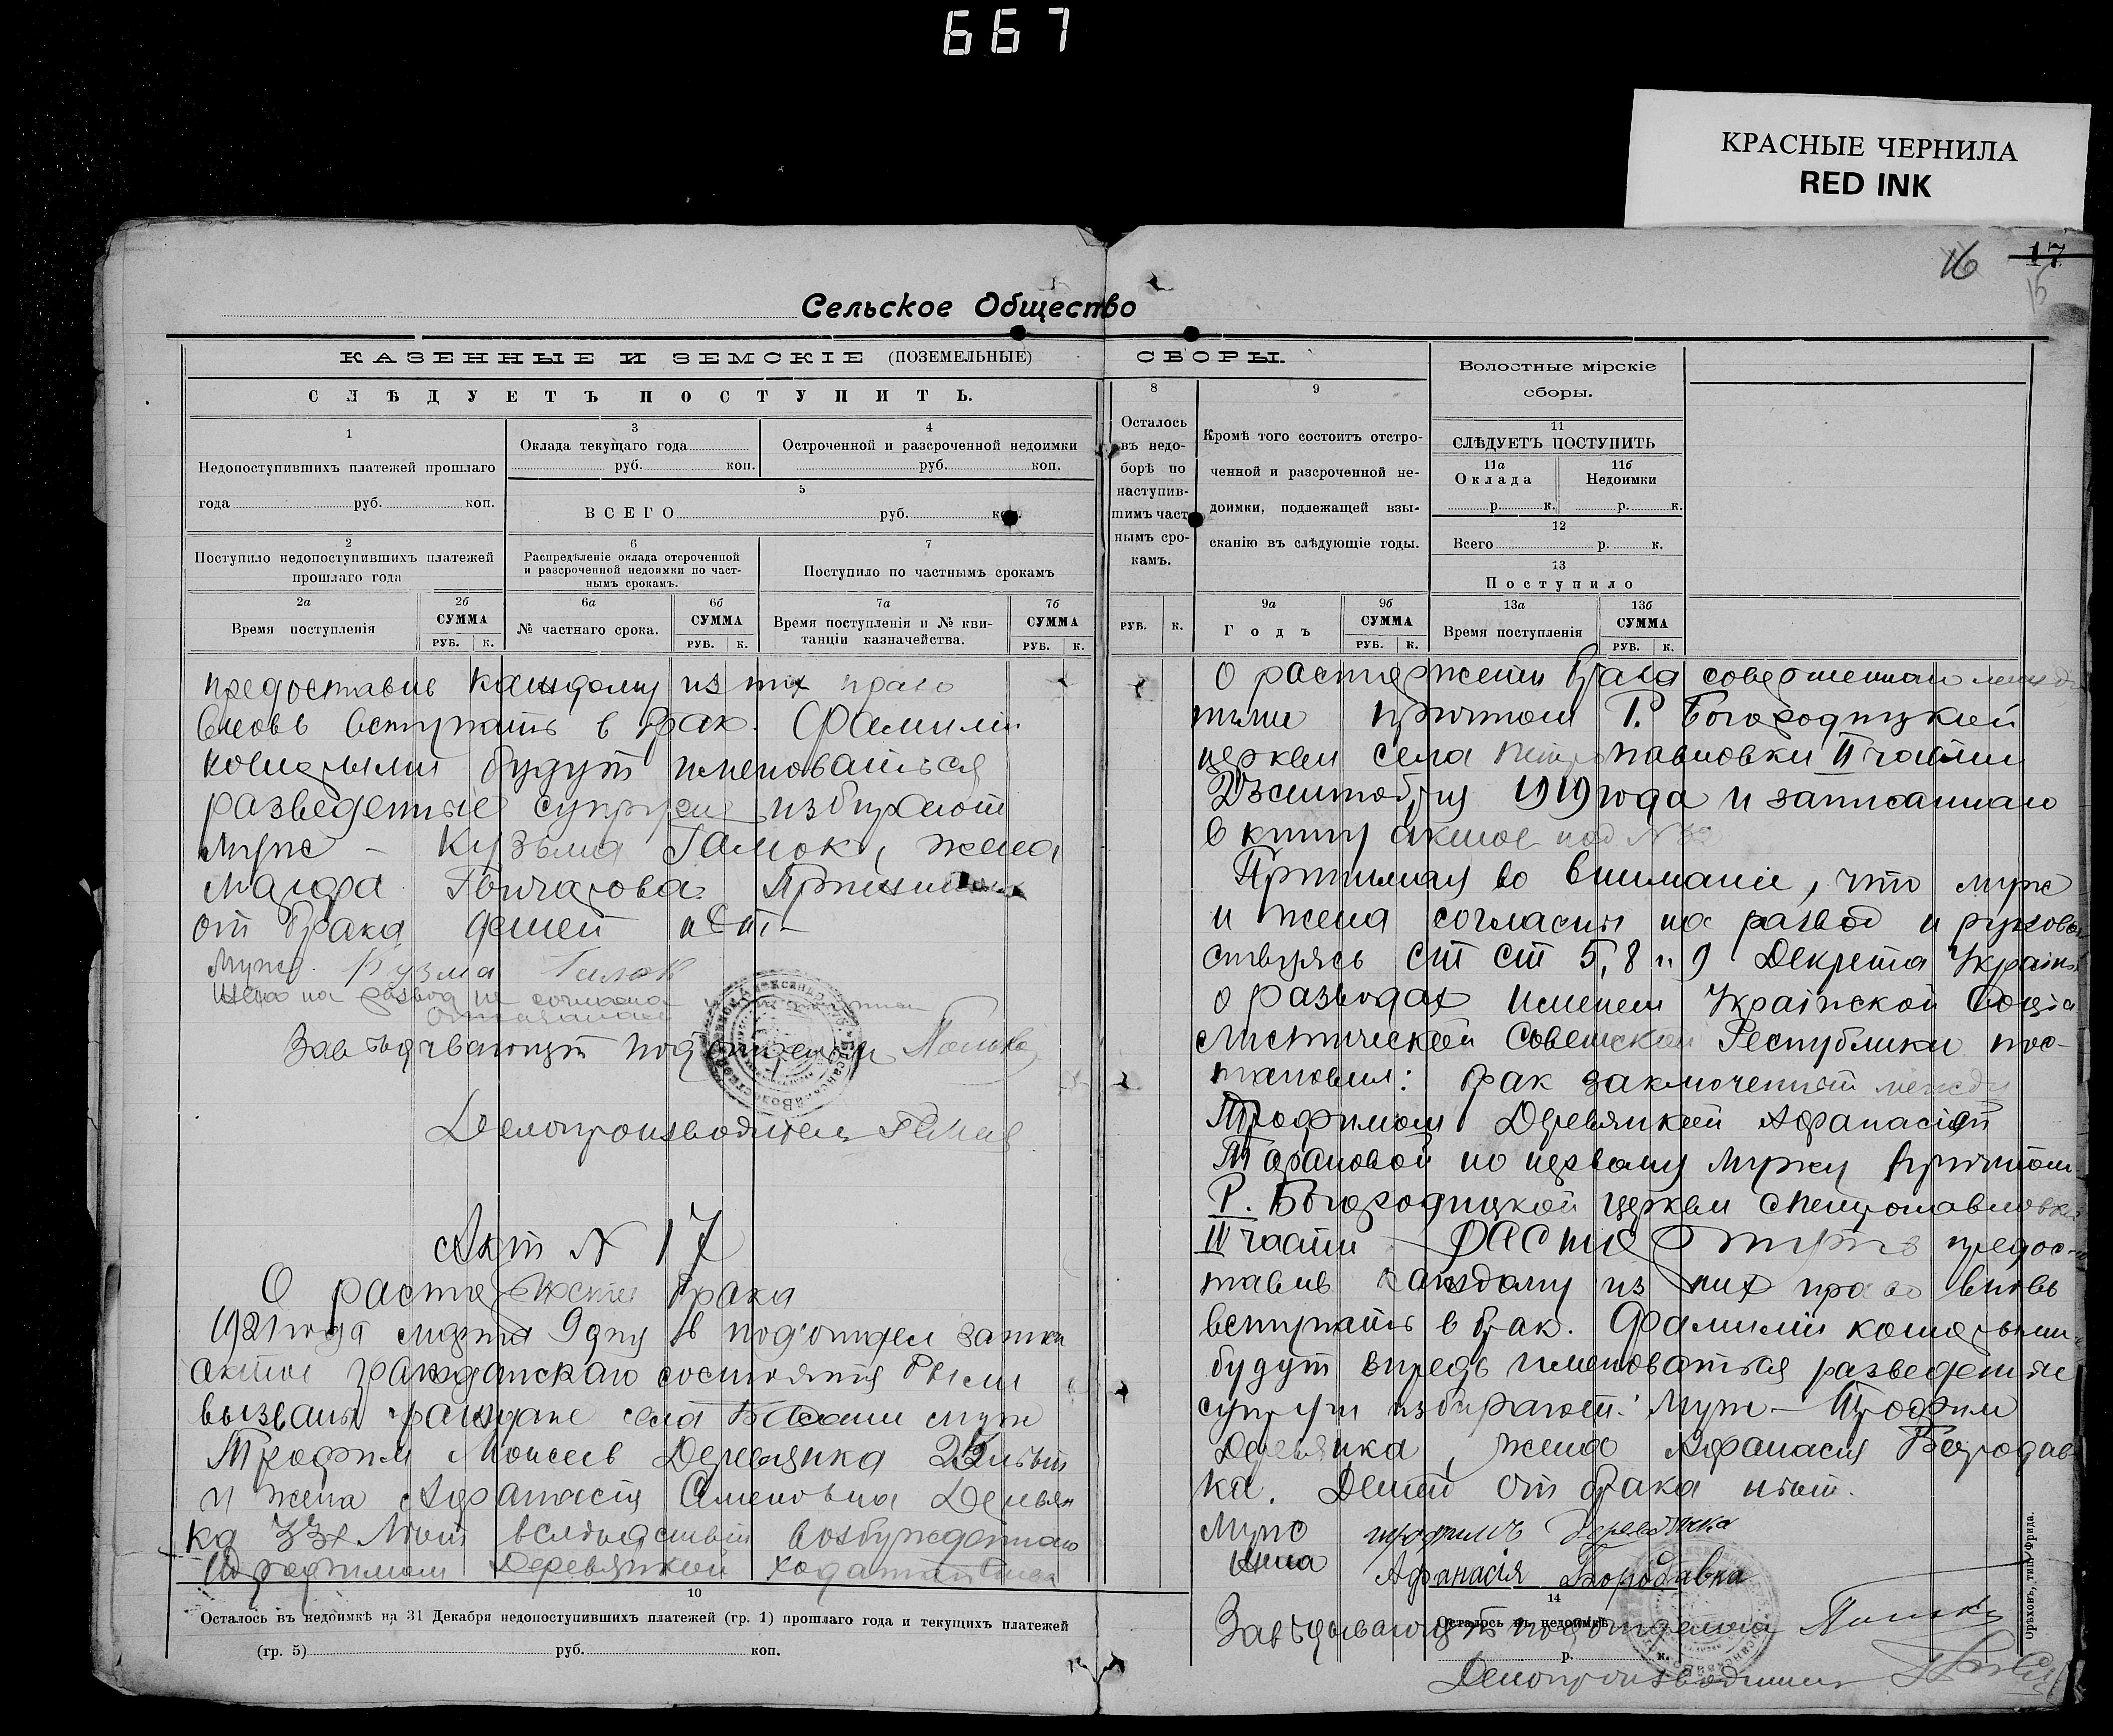 667
КРАСНЫЕ ЧЕРНИЛА
RED INK
16
17
15
Сельское Общество
КАЗЕННЫЕ И ЗЕМСКІЕ (ПОЗЕМЕЛЬНЫЕ)
СЛѢДУЕТЪ ПОСТУПИТЬ.
1
Недопоступившихъ платежей прошлаго
года руб. коп.
3
Оклада текущаго года
руб. коп.
4
Остроченной и разсроченной недоимки
руб. коп.
5
ВСЕГО руб. коп.
2
Поступило недопоступившихъ платежей
прошлаго года
6
Распредѣленіе оклада отсроченной
и разсроченной недоимки по част-
нымъ срокамъ.
7
Поступило по частнымъ срокамъ
2а
Время поступленія
2б
СУММА
РУБ. К.
6а
№ частнаго срока.
6б
СУММА
РУБ. К.
7а
Время поступленія и № кви-
танціи казначейства.
7б
СУММА
РУБ. К.
предоставив каждому из них право
вновь вступать в брак. Фамилии
будут именоваться
разведенные супруги избирают
муж – Кузьма Гамок, жена
Гончарова.
от брака детей нет
Муж. Кузма Гамок
на развод не согласна
Завѣдывающій подотделом
Делопроизводитель
Акт N 17
О расторжении брака
1921 года марта 9 дня в под'отдел записи
актов гражданского состояния были
вызваны граждане села муж
Трофим Моисеев Деревянка лѣт
и жена Афанасія Семеновна Деревян
ка 33х лѣт вслѣдствіи возбужденнаго
Трофимом Деревянкой ходатайства
10
Осталось въ недоимкѣ на 31 Декабря недопоступившихъ платежей (гр. 1) прошлаго года и текущихъ платежей
(гр. 5) руб. коп.
СБОРЫ.
8
Осталось
въ недо-
борѣ по
наступив-
шимъ част
нымъ сро-
камъ.
РУБ. К.
9
Кромѣ того состоитъ отстро-
ченной и разсроченной не-
доимки, подлежащей взы-
сканію въ слѣдующіе годы.
9а
Годъ
9б
СУММА
РУБ. К.
Волостные мірскіе
сборы.
11
СЛѢДУЕТЪ ПОСТУПИТЬ
11а
Оклада
р. к.
11б
Недоимки
р. к.
12
Всего р. к.
13
Поступило
13а
Время поступленія
13б
СУММА
РУБ. К.
О расторжении брака совершеннаго
ними причтом Р. Богородицкой
церкви села Петропавловки II части
1919 года и записаннаго
в книгу актов под N
Принимая во внимание, что муж
и жена согласны на развод и руковод
ствуясь ст ст 5, 8 и 9 Декрета Украины
о разводах именем Украінской Соціа
листической Советской Республики пос-
тановил: брак заключенный между
Трофимом Деревянкой Афанасіей
Тарановой по первому мужу причтом
Р. Богородицкой церкви с Петропавловки
II части расторгнуть предос-
тавив каждому из них право вновь
вступать в брак. Фамилии которыми
будут впредь именоваться разведенные
супруги избирают: Муж – Трофим
Деревянка, жена Афанасия Бородав
ка. Детей от брака нѣт.
Муж трофимъ Деревянка
Жена Афанасія Бородавка
14
Осталось въ недоимкѣ
р. к.
Завѣдывающій подотделом
Делопроизводитель
Орѣховъ, тип. Фрида.